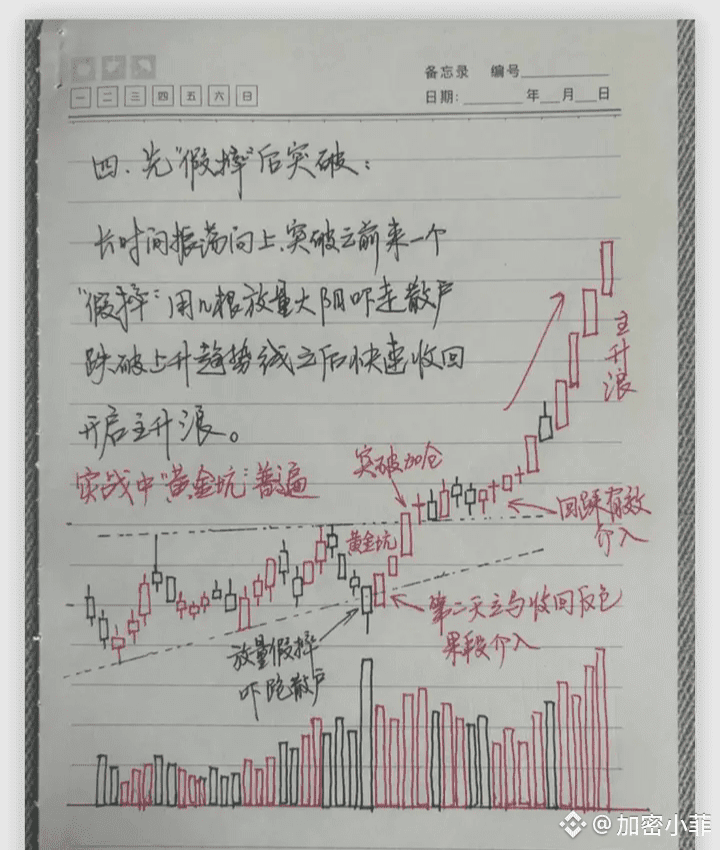 备忘录 编号
一 二 三 四 五 六 日
日期: 年 月 日
四、先“假摔”后突破：
长时间振荡向上，突破之前来一个
“假摔”用几根放量大阴吓走散户
跌破上升趋势线之后快速收回
开启主升浪。
实战中“黄金坑”普遍
主升浪
突破加仓
回踩有效
介入
黄金坑
第二天立马收回反包
果段介入
放量假摔
吓跑散户
@加密小菲